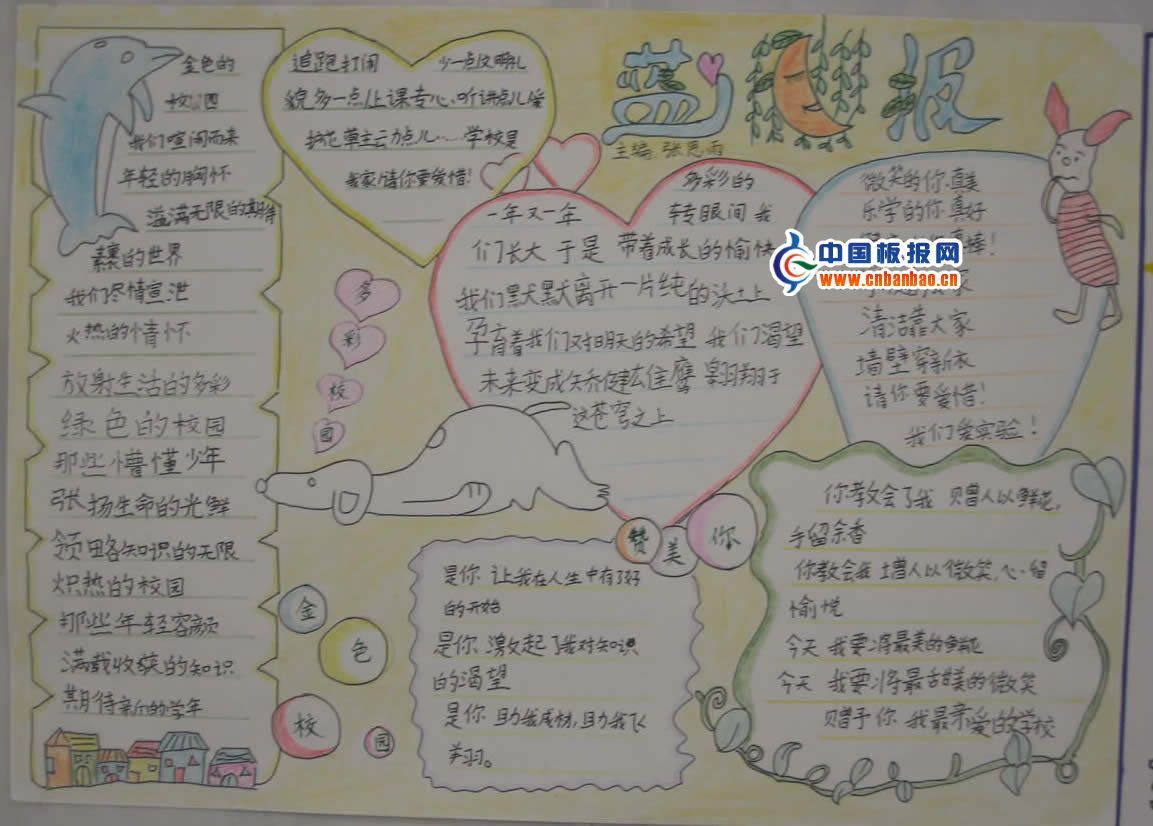 蓝月报
主编 张思雨
金色的
校园
我们喧闹而来
年轻的胸怀
溢满无限的期待
素裹的世界
我们尽情宣泄
火热的情怀
放射生活的多彩
绿色的校园
那些懵懂少年
张扬生命的光鲜
领略知识的无限
炽热的校园
那些年轻容颜
满载收获的知识
期待新的学年
追跑打闹 少一点文明礼
貌多一点上课专心、听讲点儿爱
护花草主云力点儿……学校是
我家!请你要爱惜!
多彩校园
一年又一年 多彩的
转眼间 我
们长大 于是 带着成长的愉快
我们默默离开一片纯的沃土上
孕育着我们对明天的希望 我们渴望
未来变成矫健雄鹰 翱翔于
这苍穹之上
微笑的你 真美
乐学的你 真好
真棒!
家
清洁靠大家
墙壁穿新衣
请你要爱惜!
我们爱实验!
中国板报网
www.cnbanbao.cn
赞美你
是你 让我在人生中有了好
的开始
是你 激起了我对知识
的渴望
是你 助我成材,助我飞
翔。
你教会了我 赠人以鲜花,
手留余香
你教会我 增人以微笑,心留
愉悦
今天 我要将最美的鲜花
今天 我要将最甜美的微笑
赠予你 我最亲爱的学校
金色校园